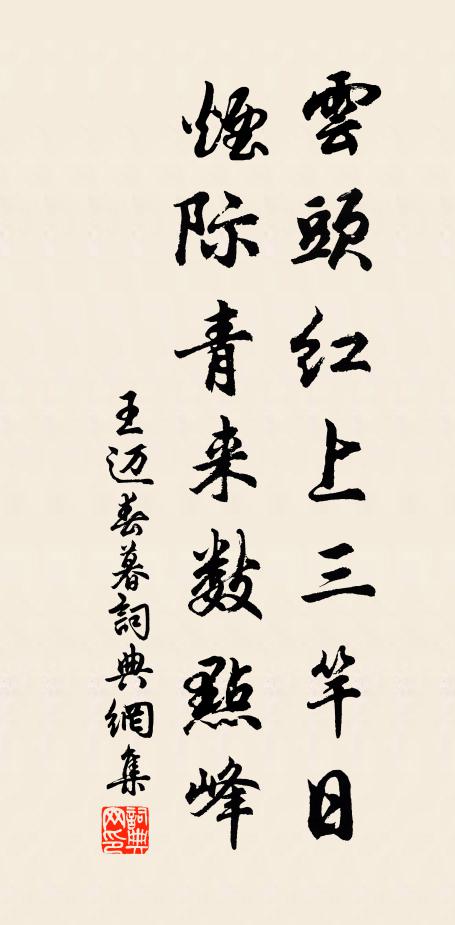 雲頭红上三竿日
煙际青来数點峰
王迈春暮詞典網集
詞典网印